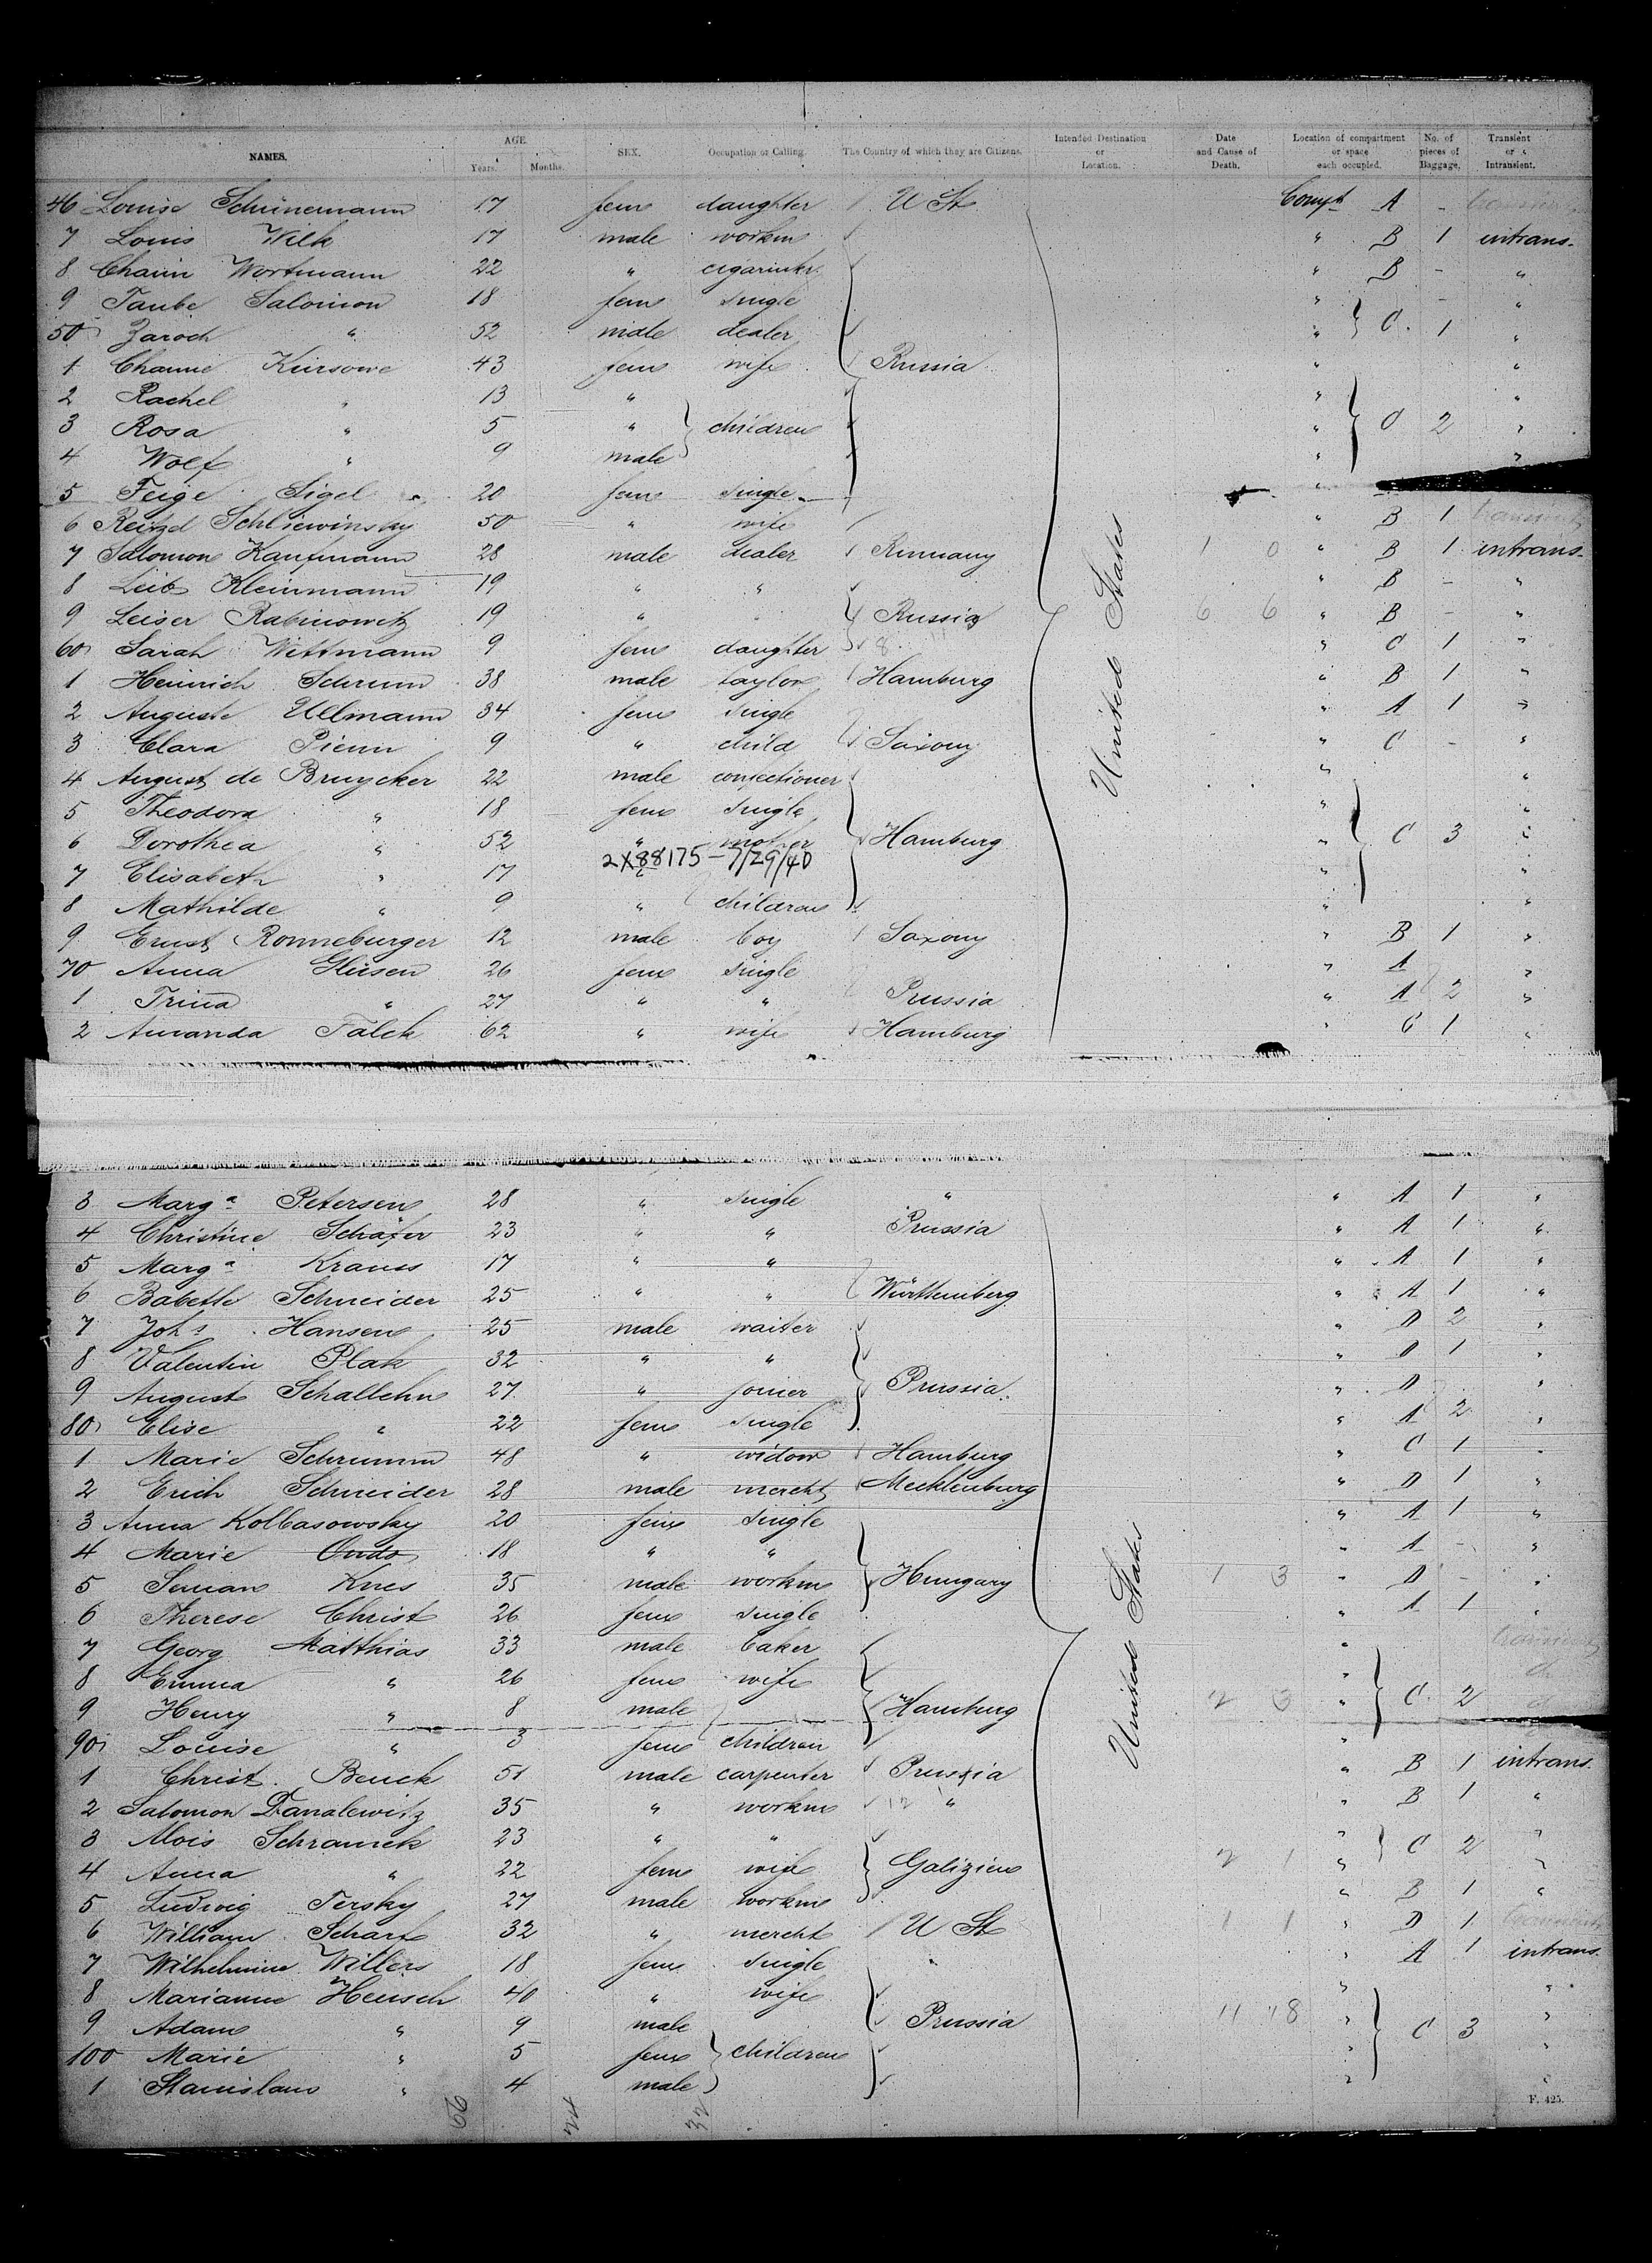 NAMES. AGE Years. Months. SEX. Occupation or Calling. The Country of which they are Citizens. Intended Destination or Location. Date and Cause of Death. Location of compartment or space each occupied. No. of pieces of Baggage. Transient or Intransient.
46 Louise Schünemann 17 fem daughter U St Compt A -
7 Louis Wilk 17 male workm " B 1 intrans.
8 Chaim Wortmann 22 " cigarmkr. " B - "
9 Taube Salomon 18 fem single " - "
50 Zaroch " 52 male dealer " C. 1 "
1 Channe Kursowe 43 fem wife Russia " "
2 Rachel " 13 " " "
3 Rosa " 5 " children " C 2 "
4 Wolf " 9 male " "
5 Feige Sigel 20 fem single "
6 Reitzel Schliewinsky 50 " wife " B 1 transient
7 Salomon Kaufmann 28 male dealer Rumany 1 0 " B 1 intrans.
8 Leib Kleinmann 19 " " " B - "
9 Leiser Rabinowitz 19 " " Russia 6 6 " B - "
60 Sarah Wittmann 9 fem daughter 8 " C 1 "
1 Heinrich Schrum 38 male taylor Hamburg " B 1 "
2 Auguste Ullmann 34 fem single " A 1 "
3 Clara Pienn 9 " child Saxony " C - "
4 August de Bruycker 22 male confectioner " "
5 Theodora " 18 fem single " "
6 Dorothea " 52 " mother Hamburg " C 3 "
2X88175 - 7/29/40
7 Elisabeth " 17 " "
8 Mathilde " 9 " children " "
9 Ernst Ronneburger 12 male boy Saxony " B 1 "
70 Anna Glüsen 26 fem single " A "
1 Trina " 27 " " Prussia " A 2 "
2 Amanda Falck 62 " wife Hamburg " C 1 "
United States
3 Marga Petersen 28 " single " " A 1 "
4 Christine Schäfer 23 " " Prussia " A 1 "
5 Marga Krauss 17 " " " A 1 "
6 Babette Schneider 25 " " Württemberg " A 1 "
7 Johs Hansen 25 male waiter " D 2 "
8 Valentin Plak 32 " " " D 1 "
9 August Schallehn 27 " joiner Prussia " D "
80 Elise " 22 fem single " A 2 "
1 Marie Schrumm 48 " widow Hamburg " C 1 "
2 Erich Schneider 28 male mercht Mecklenburg " D 1 "
3 Anna Kolbasowsky 20 fem single " A 1 "
4 Marie 18 " " " A - "
5 Knes 35 male workm Hungary 1 3 " D - "
6 Therese Christ 26 fem single " A 1 "
7 Georg Matthias 33 male baker " transient
8 Emma " 26 fem wife " d
9 Henry " 8 male Hamburg 2 3 " C 2 d
90 Louise " 3 fem children "
1 Christ. Benck 51 male carpenter Prussia " B 1 intrans.
2 Salomon Danalewitz 35 " workm 12 " " B 1 "
3 Alois Schramek 23 " " " C 2 "
4 Anna " 22 fem wife Galizien 2 1 " "
5 Ludwig Tersky 27 male workm " B 1 "
6 William Scharf 32 " mercht U St 1 1 " D 1 transient
7 Wilhelmine Willers 18 fem single " A 1 intrans.
8 Marianne Hensch 40 " wife " "
9 Adam " 9 male Prussia 11 18 " C 3 "
100 Marie " 5 fem children " "
1 Stanislaus " 4 male " "
United States
29
32
F. 425.